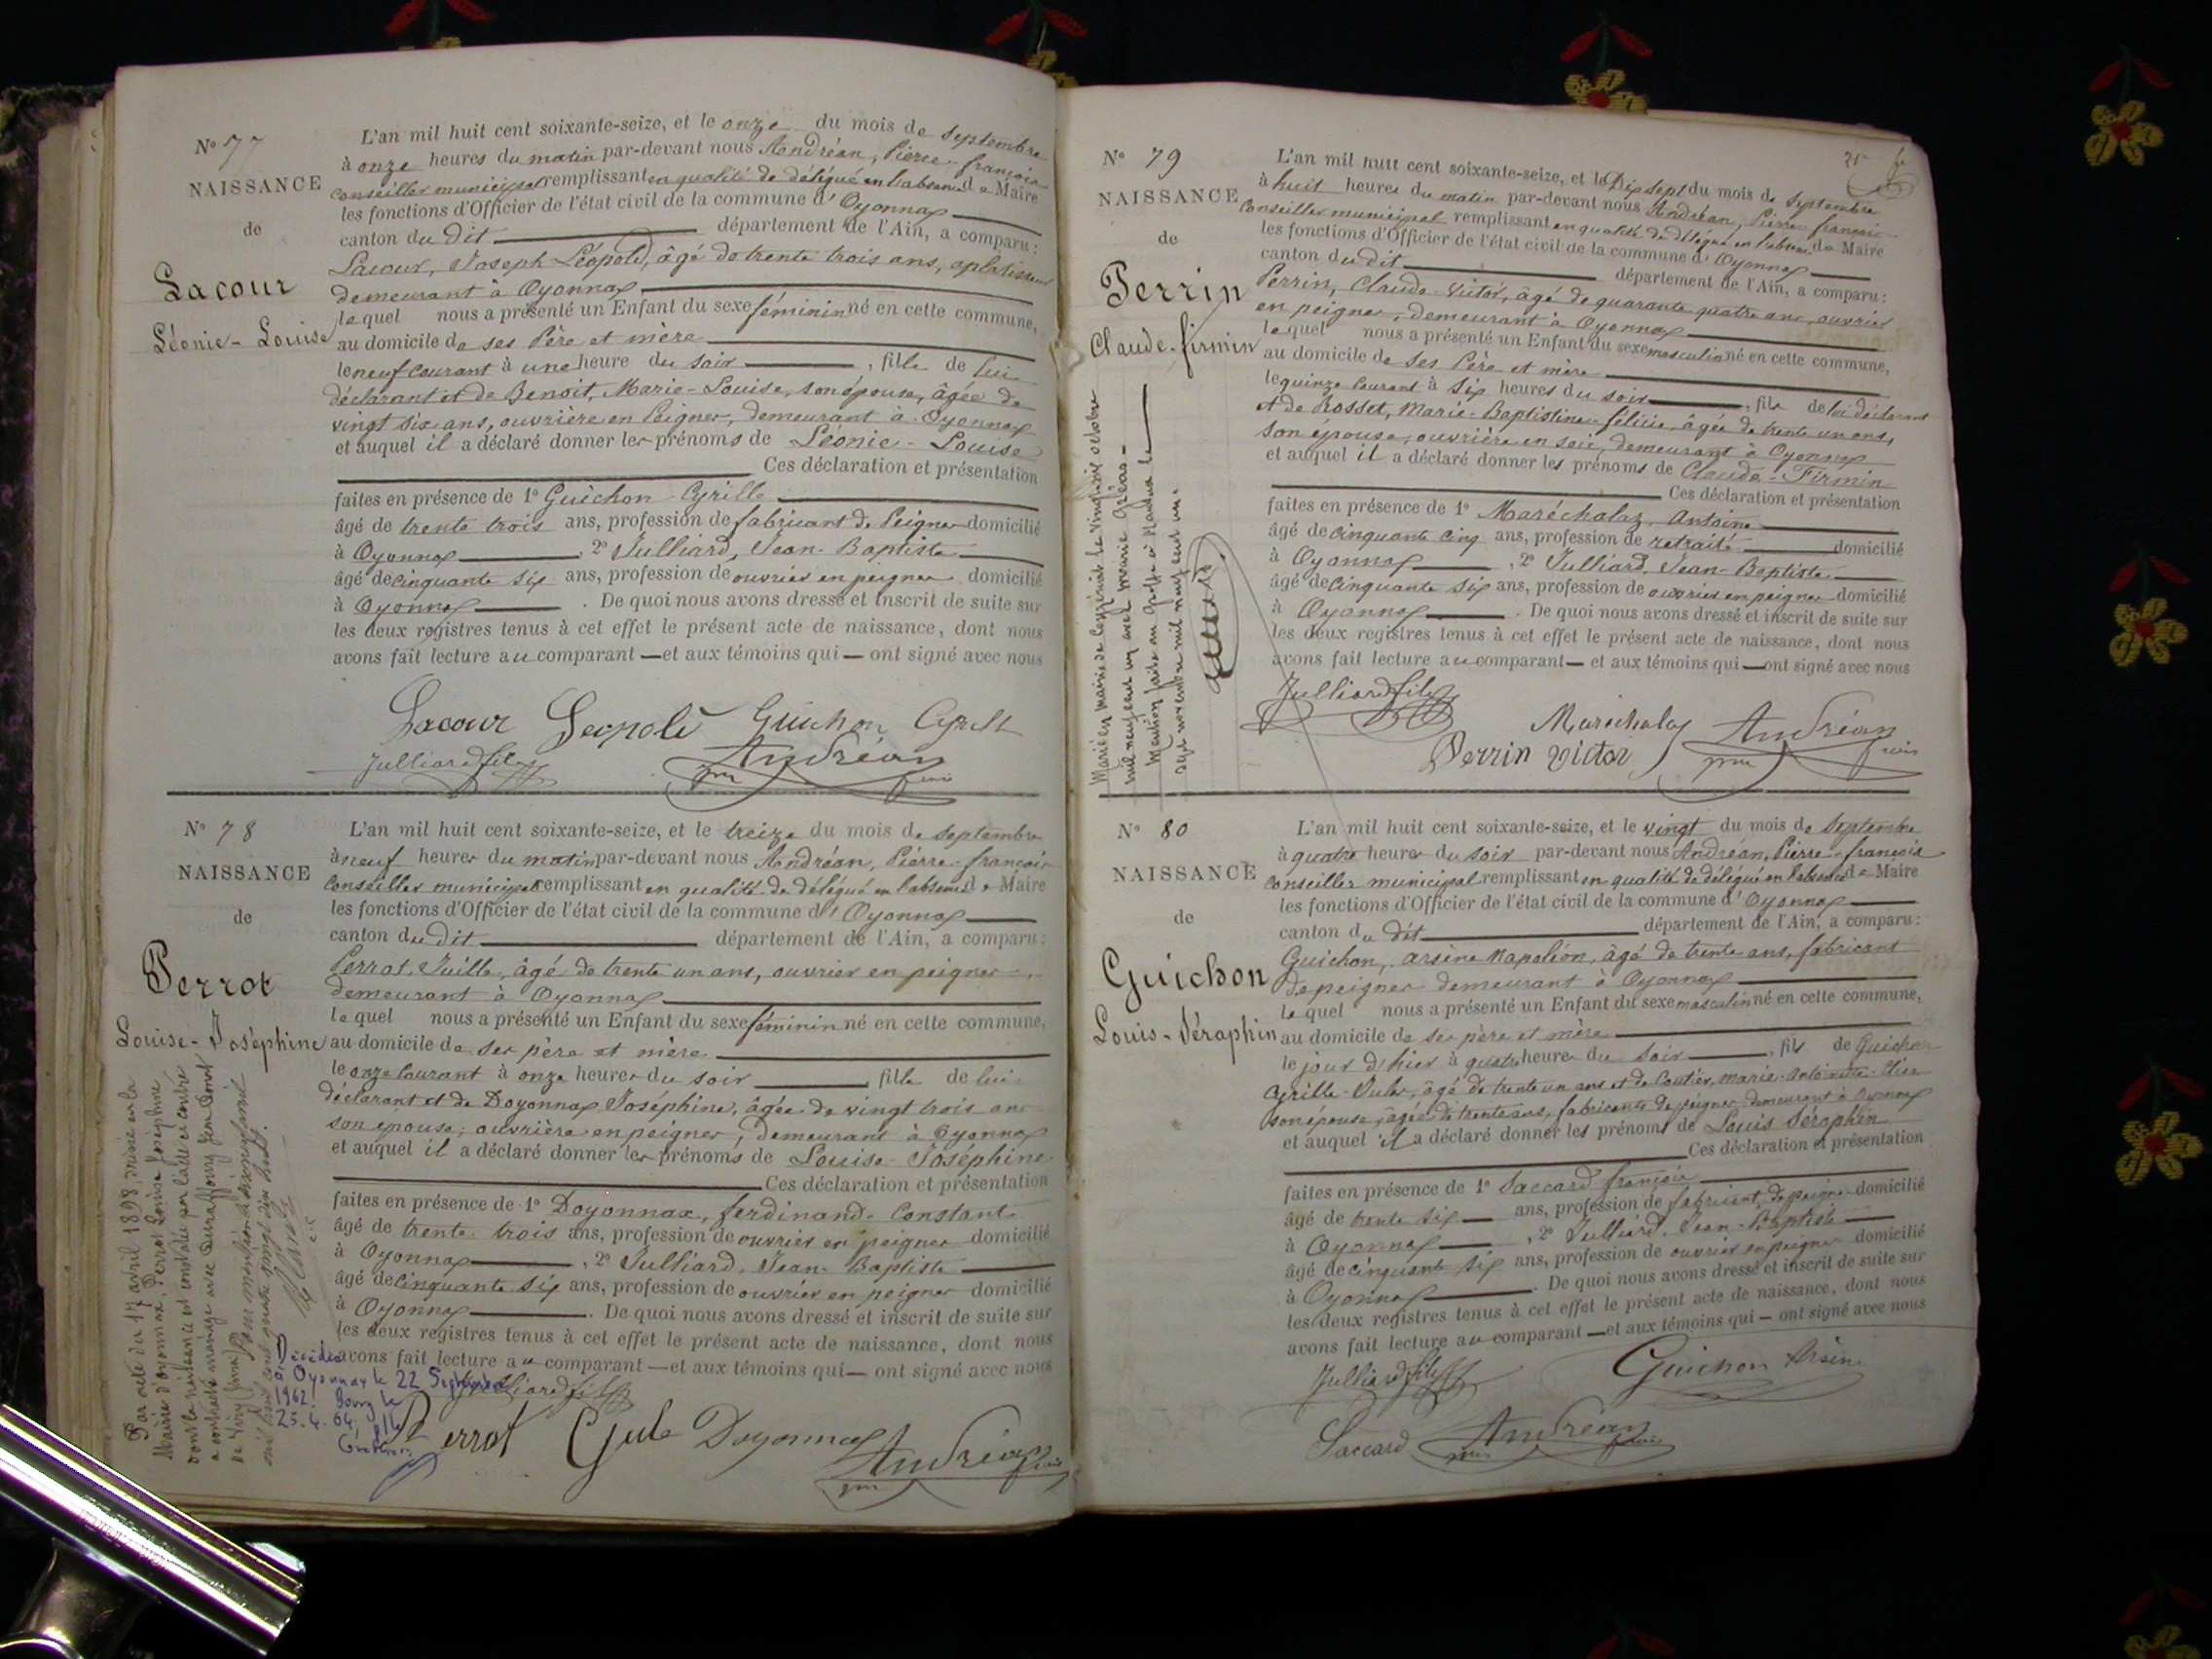 N° 77
NAISSANCE
de
Lacour
Léonie-Louise
L'an mil huit cent soixante-seize, et le onze du mois de septembre
à onze heures du matin par-devant nous Andréan, Pierre-françois
conseiller municipal remplissant en qualité de délégué en l'absence de Maire
les fonctions d'Officier de l'état civil de la commune d'Oyonnax
canton du dit département de l'Ain, a comparu:
Lacour, Joseph Léopold, âgé de trente trois ans, aplatisseur
demeurant à Oyonnax
lequel nous a présenté un Enfant du sexe féminin né en cette commune,
au domicile de ses Père et mère
le neuf courant à une heure du soir, fille de lui
déclarant et de Benoit, Marie-Louise, son épouse, âgée de
vingt six ans, ouvrière en Peignes, demeurant à Oyonnax
et auquel il a déclaré donner les prénoms de Léonie-Louise
Ces déclaration et présentation
faites en présence de 1° Guichon Cyrille
âgé de trente trois ans, profession de fabricant de Peignes domicilié
à Oyonnax, 2° Julliard, Jean-Baptiste
âgé de cinquante six ans, profession de ouvrier en peignes domicilié
à Oyonnax. De quoi nous avons dressé et inscrit de suite sur
les deux registres tenus à cet effet le présent acte de naissance, dont nous
avons fait lecture au comparant — et aux témoins qui — ont signé avec nous
Lacour Leopold Guichon Cyrille
Julliard fils Andréan
N° 78
NAISSANCE
de
Perrot
Louise-Joséphine
L'an mil huit cent soixante-seize, et le treize du mois de septembre
à neuf heures du matin par-devant nous Andréan, Pierre-françois
Conseiller municipal remplissant en qualité de délégué en l'absence de Maire
les fonctions d'Officier de l'état civil de la commune d'Oyonnax
canton du dit département de l'Ain, a comparu:
Perrot, âgé de trente un ans, ouvrier en peignes
demeurant à Oyonnax
lequel nous a présenté un Enfant du sexe féminin né en cette commune,
au domicile de ses père et mère
le onze courant à onze heures du soir, fille de lui
déclarant et de Doyonnax Joséphine, âgée de vingt trois ans
son épouse, ouvrière en peignes, demeurant à Oyonnax
et auquel il a déclaré donner les prénoms de Louise-Joséphine
Ces déclaration et présentation
faites en présence de 1° Doyonnax, ferdinand-Constant
âgé de trente trois ans, profession de ouvrier en peignes domicilié
à Oyonnax, 2° Julliard, Jean-Baptiste
âgé de cinquante six ans, profession de ouvrier en peignes domicilié
à Oyonnax. De quoi nous avons dressé et inscrit de suite sur
les deux registres tenus à cet effet le présent acte de naissance, dont nous
avons fait lecture au comparant — et aux témoins qui — ont signé avec nous
Julliard fils
Perrot Doyonnax Andréan
Par acte du 17 avril 1898, dressé en la
Mairie d'oyonnax, Perrot Louise Joséphine
dont la naissance est constatée par l'acte ci contre
a contracté mariage avec
Décédée
à Oyonnax le 22 Septembre
1962. Bourg le
25.4.64
N° 79
NAISSANCE
de
Perrin
Claude-firmin
L'an mil huit cent soixante-seize, et le Dix sept du mois de Septembre
à huit heures du matin par-devant nous Andréan, Pierre-françois
Conseiller municipal remplissant en qualité de délégué en l'absence de Maire
les fonctions d'Officier de l'état civil de la commune d'Oyonnax
canton du dit département de l'Ain, a comparu:
Perrin, Claude-Victor, âgé de quarante quatre ans, ouvrier
en peignes, demeurant à Oyonnax
lequel nous a présenté un Enfant du sexe masculin né en cette commune,
au domicile de ses Père et mère
le quinze courant à six heures du soir, fils de lui déclarant
et de Rosset, Marie-Baptistine-félicie, âgée de trente un ans,
son épouse, ouvrière en soie, demeurant à Oyonnax
et auquel il a déclaré donner les prénoms de Claude-Firmin
Ces déclaration et présentation
faites en présence de 1° Maréchalaz, Antoine
âgé de cinquante cinq ans, profession de retraité domicilié
à Oyonnax, 2° Julliard, Jean-Baptiste
âgé de cinquante six ans, profession de ouvrier en peignes domicilié
à Oyonnax. De quoi nous avons dressé et inscrit de suite sur
les deux registres tenus à cet effet le présent acte de naissance, dont nous
avons fait lecture au comparant — et aux témoins qui — ont signé avec nous
Julliard fils
Marechalaz Andréan
Perrin Victor
N° 80
NAISSANCE
de
Guichon
Louis-Séraphin
L'an mil huit cent soixante-seize, et le vingt du mois de Septembre
à quatre heures du soir par-devant nous Andréan, Pierre-françois
Conseiller municipal remplissant en qualité de délégué en l'absence de Maire
les fonctions d'Officier de l'état civil de la commune d'Oyonnax
canton du dit département de l'Ain, a comparu:
Guichon, arsène Napoléon, âgé de trente ans, fabricant
de peignes demeurant à Oyonnax
lequel nous a présenté un Enfant du sexe masculin né en cette commune,
au domicile de ses père et mère
le jour d'hier à quatre heures du soir, fils de Guichon
Cyrille-Jules, âgé de trente un ans et de Coutier, marie-antoinette-
son épouse, âgée de trente ans, fabricants de peignes demeurant à Oyonnax
et auquel il a déclaré donner les prénoms de Louis Séraphin
Ces déclaration et présentation
faites en présence de 1° Saccard françois
âgé de trente six ans, profession de fabricant de peignes domicilié
à Oyonnax, 2° Julliard, Jean-Baptiste
âgé de cinquante six ans, profession de ouvrier en peignes domicilié
à Oyonnax. De quoi nous avons dressé et inscrit de suite sur
les deux registres tenus à cet effet le présent acte de naissance, dont nous
avons fait lecture au comparant — et aux témoins qui — ont signé avec nous
Julliard fils Guichon Arsène
Saccard Andréan